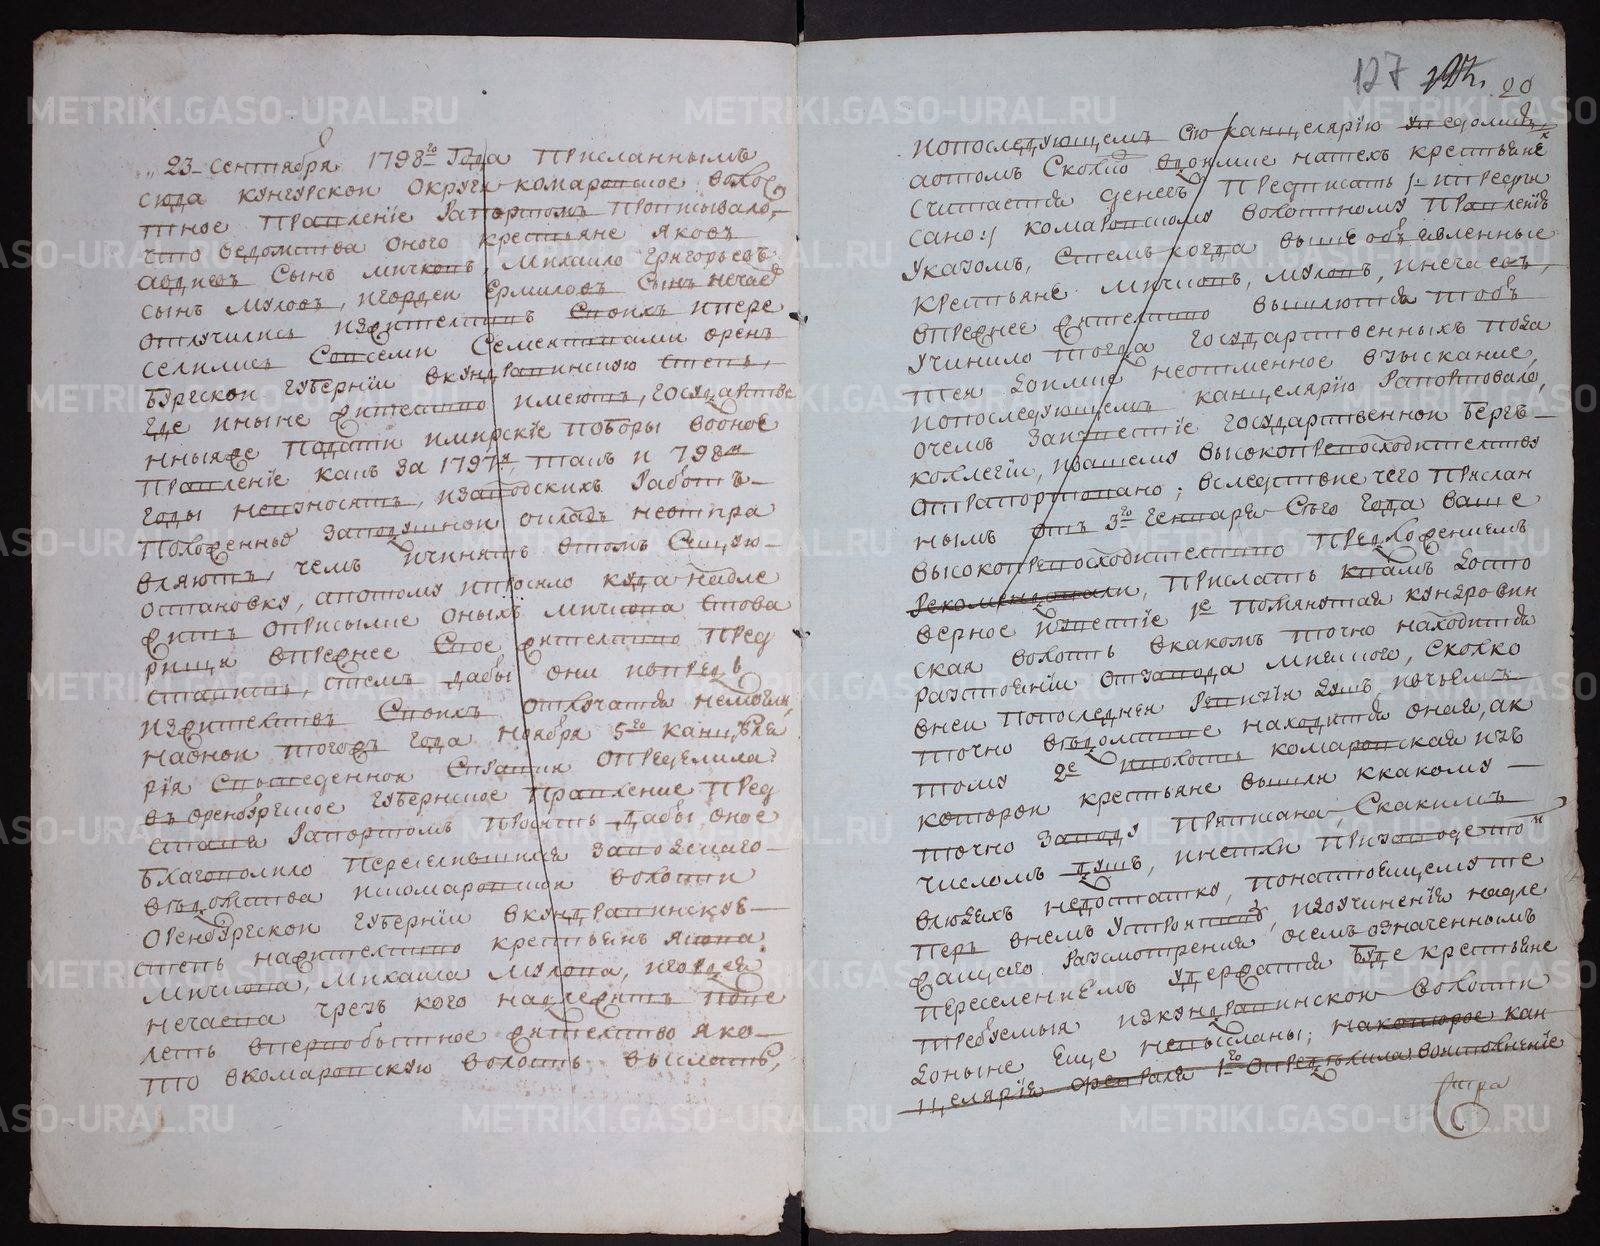 23 сентября 1798го года присланнымъ
сюда кунгурской округи комаровское волос
тное правление рапортомъ прописывало,
что ведомства оного крестьяне яковъ
авдиевъ сынъ мичковъ, михайло григорьевъ
сынъ муловъ, игордеи ермиловъ сынъ нечаев
отлучились изжителствъ своихъ ипере
селились совсеми семействами орен
бургской губернiи вкундравинскую степь,
где иныне жителство имеютъ, государстве
нныяже подати имирскiе поборы водное
правленiе какъ за 1797й, такъ и 798й
годы невзносятъ, изаводскихъ работъ
положенныхъ заподушной окладъ неотпра
вляютъ, чемъ ичинятъ втомъ сущую
остановку, апотому ипросило куда надле
житъ отписылке оныхъ мичкова стова
рищи впрежнее свое жителство пред
ставить, стемъ дабы они впредь
изжителствъ своихъ отлучатся немогли,
наоной тогожъ года ноября 5го канцеля
рiя свышеденной справки определила:
въ оренбургское губернское правление пред
ставя рапортомъ просить дабы, оное
благоволило переселившихся заводскаго
ведомства икомаровской волости
оренбургской губернiи вкундравинскую
степь нажителство крестьянъ якова
мичкова, михаила мулова, игордея
нечаева чрезъ кого надлежитъ пове
леть впервобытное жителство яко
то вкомаровскую волость выслать,
127 20
ипоследующемъ сiю канцелярiю уведомить,
аотомъ сколко вдоимке натехъ крестьяне
считается денегъ предписать /: ипредпи
сано :/ комаровскому волостному правленiю
указомъ, стемъ когда вышеобъявленные
крестьяне мичковъ, муловъ, инечаевъ,
впрежнее жителство вышлются тобъ
учинило тогда государственныхъ пода
тей доимке неотменное взыскание,
ипоследующемъ канцелярiю рапортовало,
очемъ заизвестiе государственной бергъ
коллегiи, ивашему высокопревосходителству
отрапортовано; вследствие чего прислан
нымъ отъ 3го генваря сего года ваше
высокопревосходителство предложениемъ
рекомендовали, прислать квамъ досто
верное известiе 1е помянутая кундравин
ская волость вкакомъ точно находится
разстоянiи отзавода миясского, сколко
вней попоследней ревизiи душъ, ивчьемъ
точно ведомстве находится оная, ак
тому 2е иволость комаровская изъ
которой крестьяне вышли ккакому
точно заводу приписана, скакимъ
числомъ душъ, инетли призаводетой
влюдяхъ недостатку, понастоящемуте
перь внемъ устройству, идоучиненiя надле
жащаго разсмотрения осемъ означеннымъ
переселениемъ удержатся буде крестьяне
требуемыя изкундравинской волости
доныне еще невысланы; накоторое кан
целярiя февраля 1го определила воисполненiе
Спра